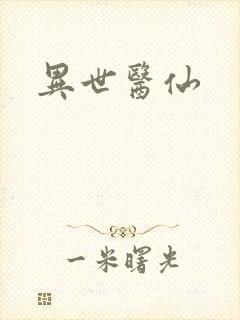 異世醫仙
一米曙光